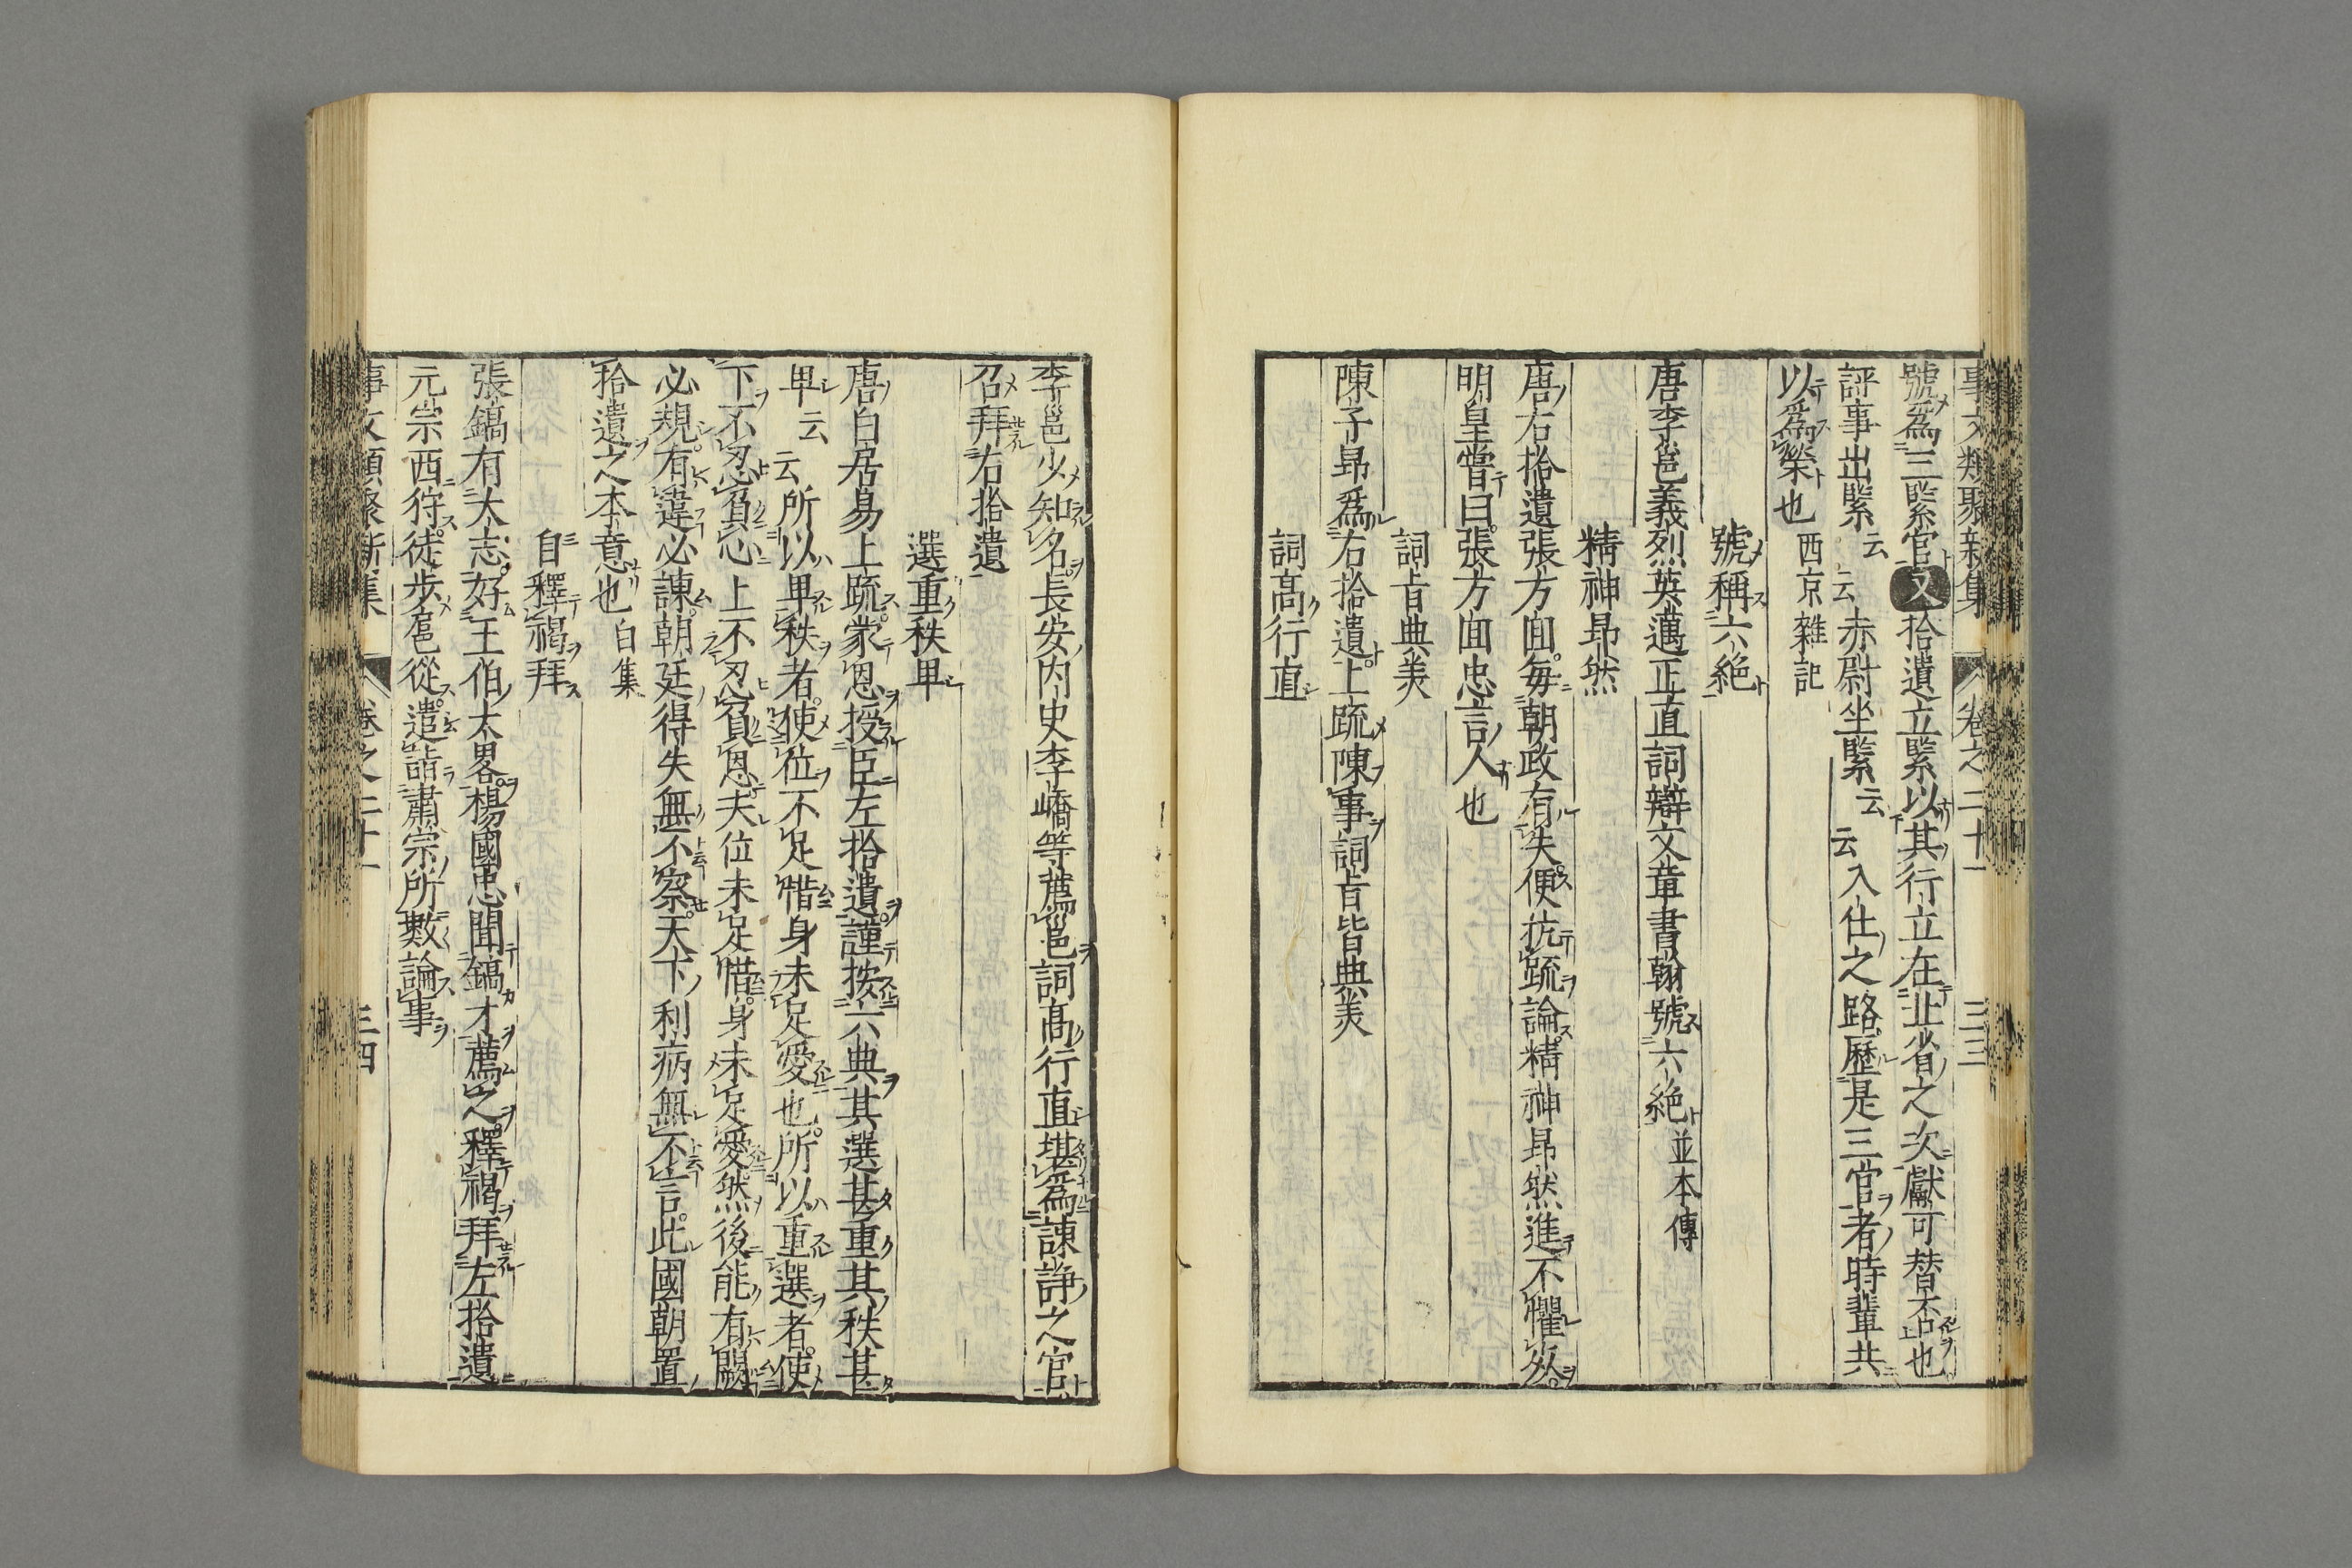 事文類聚新集 卷之二十一 三三
號爲三緊官又拾遺立緊以其行立在北省之次獻可替否也
評事出緊云云赤尉坐緊云云入仕之路歷是三官者時輩共
以爲榮也西京雜記
號稱六絶
唐李邕義烈英邁正直詞辯文章書翰號六絶並本傳
精神昻然
唐右拾遺張方囬每朝政有失便抗疏論精神昻然進不懼
明皇嘗曰張方囬忠言人也
詞旨典美
陳子昻爲右拾遺上疏陳事詞旨皆典美
詞髙行直
李邕少知名長安内史李嶠等薦邕詞髙行直堪爲諫諍之官
召拜右拾遺
選重秩卑
唐白居易上疏蒙恩授臣左拾遺謹按六典其選甚重其秩甚
卑云云所以卑秩者使位不足惜身未足愛也所以重選者使
下不忍負心上不忍負恩夫位未足惜身未足愛然後能有闕
必規有違必諫朝廷得失無不察天下利病無不言此國朝置
拾遺之本意也白集
自釋褐拜
張鎬有大志好王伯大畧楊國忠聞鎬才薦之釋褐拜左拾遺
元宗西狩徒步扈從遣詣肅宗所數論事
事文類聚新集 卷之二十一 三四